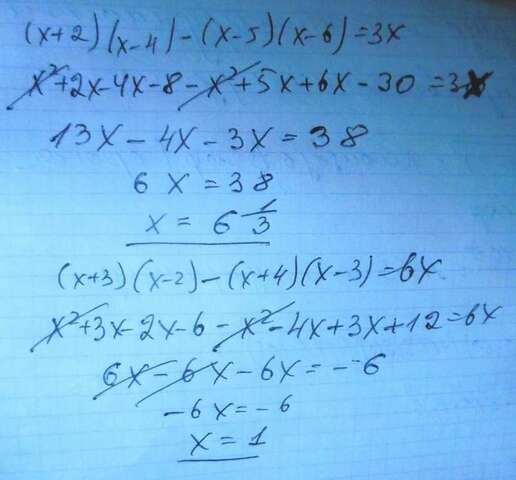 (x+2)(x-4)-(x-5)(x-6)=3x
x²+2x-4x-8-x²+5x+6x-30=3x
13x-4x-3x=38
6x=38
x=6 1/3
(x+3)(x-2)-(x+4)(x-3)=6x
x²+3x-2x-6-x²-4x+3x+12=6x
6x-6x-6x=-6
-6x=-6
x=1